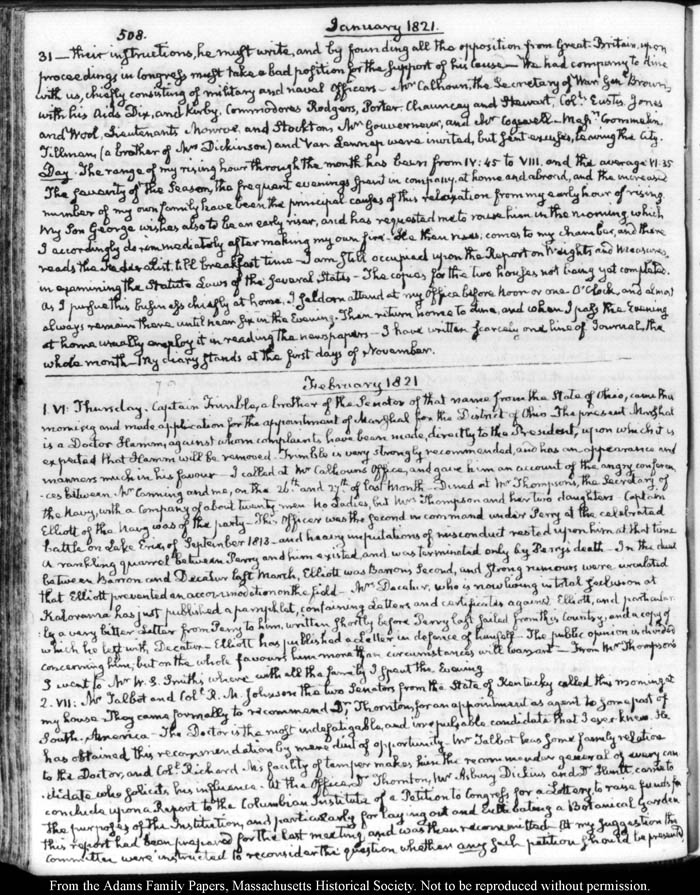 508.
January 1821.
31 — their instructions, he must write, and by founding all the opposition from Great-Britain, upon
proceedings in Congress must take a bad position for the support of his cause — We had company to dine
with us, chiefly consisting of military and naval Officers — Mr Calhoun, the Secretary of War Genl Brown,
with his Aids Dix, and Kirby. Commodores Rodgers, Porter, Chauncey and Stewart, Colls Eustis, Jones
and Wool, Lieutenants Monroe, and Stockton. Mr Gouverneur, and Mr Cogswell — Messrs
Tillman, (a brother of Mrs Dickinson) and Van Lennep were invited, but sent excuses, leaving the City.
Day. The range of my rising hour through the month has been from IV:45 to VIII. and the average VI:35
The severity of the Season, the frequent evenings spent in company, at home and abroad, and the increased
number of my own family have been the principal causes of this relaxation from my early hour of rising
My Son George wishes also to be an early riser, and has requested me to rouse him in the morning which
I accordingly do immediately after making my own fire. He then rises, comes to my chamber, and there
reads the Federalist, till breakfast time — I am still occupied upon the Report on Weights and Measures,
in examining the Statute Laws of the several States — The copies for the two houses not being yet completed.
As I pursue this business chiefly at home, I seldom attend at my Office before Noon or one O'Clock, and almost
always remain there until near six in the Evening. Then return home to dine, and when I pass the Evening
at home usually employ it in reading the newspapers — I have written scarcely one line of Journal, the
whole month — My diary stands at the first days of November.
February 1821
1. VI: Thursday. Captain Trimble, a brother of the Senator of that name from the State of Ohio, came this
morning and made application for the appointment of Marshal for the District of Ohio. The present Marshal
is a Doctor Hamm, against whom complaints have been made, directly to the President, upon which it is
expected that Hamm will be removed. Trimble is very strongly recommended, and has an appearance and
manners much in his favour — I called at Mr Calhoun's Office, and gave him an account of the angry conferen-
-ces between Mr Canning and me, on the 26th and 27th of last Month — Dined at Mr Thompson's, the Secretary of
the Navy, with a Company of about twenty men. No Ladies, but Mrs Thompson and her two daughters. Captain
Elliott of the Navy was of the party — This Officer was the second in command under Perry at the celebrated
battle on Lake Erie, of September 1813 — and heavy imputations of misconduct rested upon him at that time
A rambling quarrel between Perry and him existed, and was terminated only by Perry's death — In the duel
between Barron and Decatur last March, Elliott was Barron's Second, and strong rumours were circulated
that Elliott prevented an accommodation on the field — Mrs Decatur, who is now living in total seclusion at
Kalorama has just published a pamphlet, containing Letters and certificates against Elliott, and particular-
-ly a very bitter Letter from Perry to him, written shortly before Perry last sailed from this Country, and a copy of
which he left with Decatur — Elliott has published a Letter in defence of himself — The public opinion is divided
concerning him, but on the whole favours him more than circumstances will warrant — From Mr Thompson's
I went to Mr W. S. Smith's where with all the family I spent the Evening
2. VII: Mr Talbot and Coll R. M. Johnson the two Senators from the State of Kentucky called this morning at
my house. They came formally to recommend Dr Thornton for an appointment as agent to some part of
South-America — The Doctor is the most indefatigable, and irrepulsable candidate that I ever knew. He
has obtained this recommendation by mere dint of opportunity. Mr Talbot has some family relation
to the Doctor, and Coll Richard M.'s facility of temper makes him the recommender general of every can-
-didate who solicits his influence. At the Office, Dr Thornton, Mr Asbury Dickins and Dr Huntt came to
conclude upon a Report to the Columbian Institute of a Petition to Congress for a Lottery, to raise funds for
the purposes of the Institution, and particularly for laying out and cultivating a Botanical Garden
this report had been prepared for the last meeting, and was then recommitted — At my suggestion the
Committee were instructed to reconsider the question whether any such petition should be presented
From the Adams Family Papers, Massachusetts Historical Society. Not to be reproduced without permission.